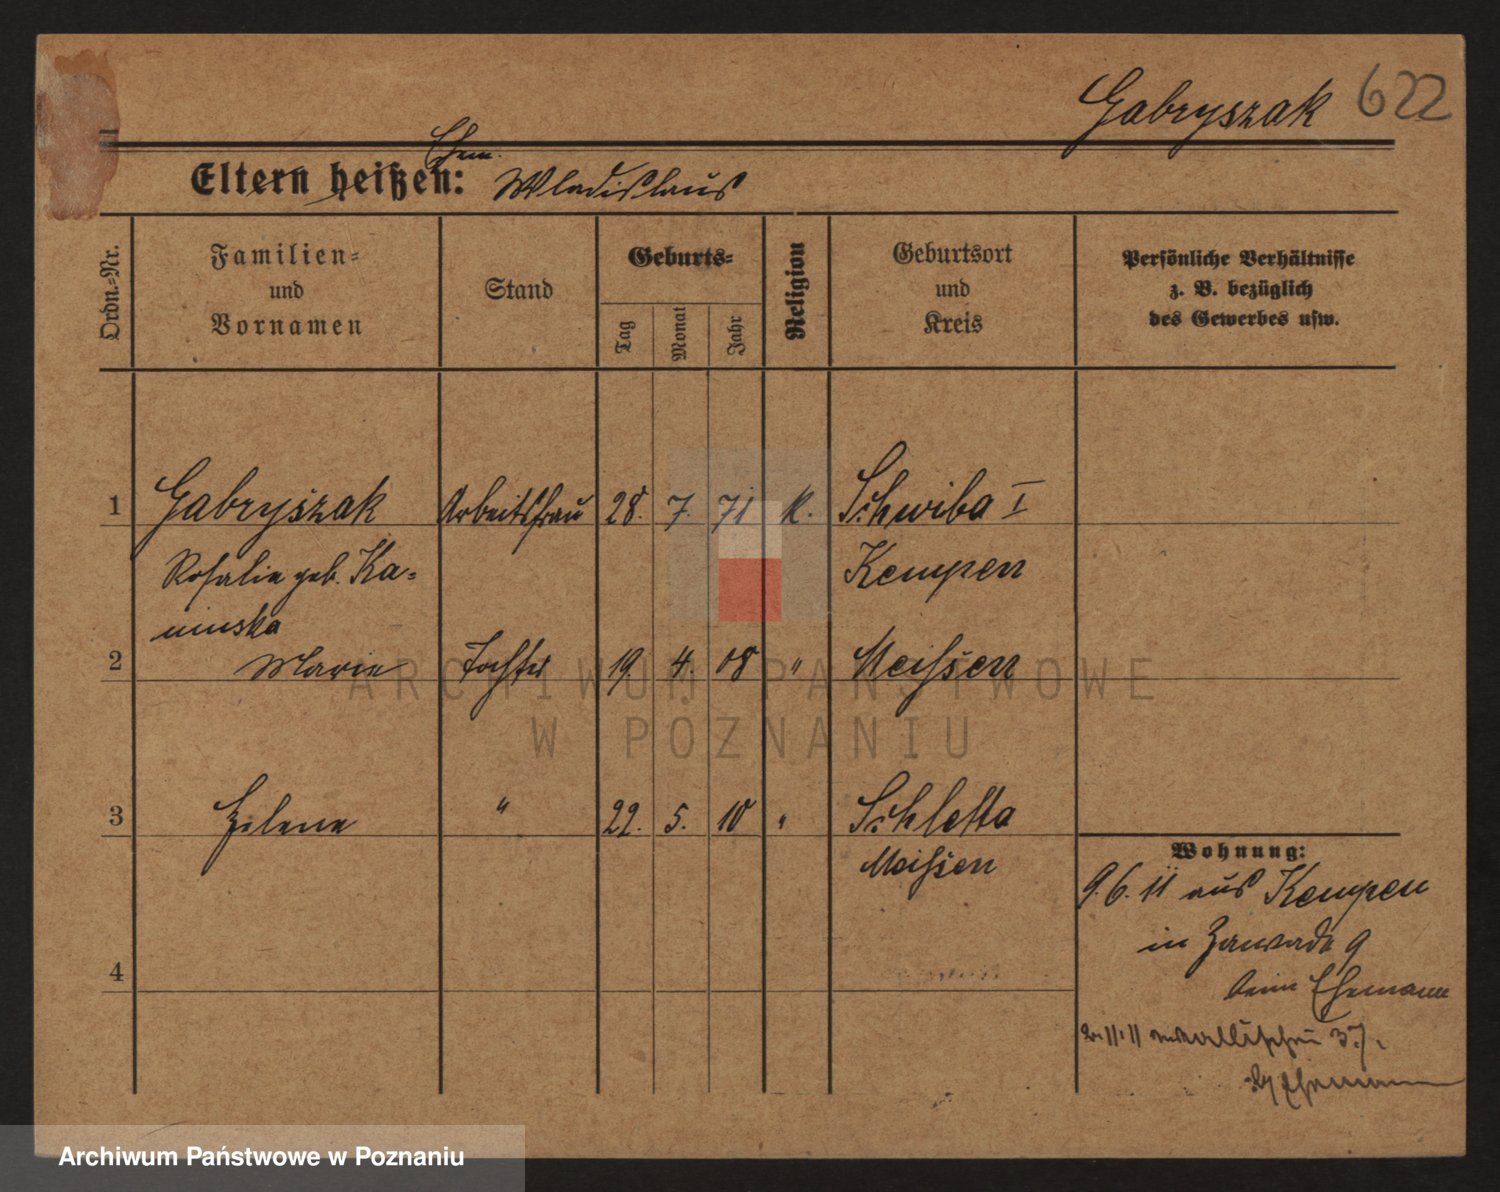 Gabryszak 622
Ehem.
Eltern heißen: Wladislaus
Ordn.-Nr.
Familien-
und
Vornamen
Stand
Geburts-
Tag
Monat
Jahr
Religion
Geburtsort
und
Kreis
Persönliche Verhältnisse
z. B. bezüglich
des Gewerbes usw.
1 Gabryszak Arbeitsfrau 28. 7. 71 k. Schwiba I
Rosalie geb. Ka-
minska
Kempen
2 Marie Tochter 19. 4. 08 " Meißen
3 Helene " 22. 5. 10 " Schletta
Meißen
4
Wohnung:
9.6.11 aus Kempen
in Zawade 9
beim Ehemann
2.11.11 Wallischei 37.
Ehemann
ARCHIWUM PAŃSTWOWE
W POZNANIU
Archiwum Państwowe w Poznaniu